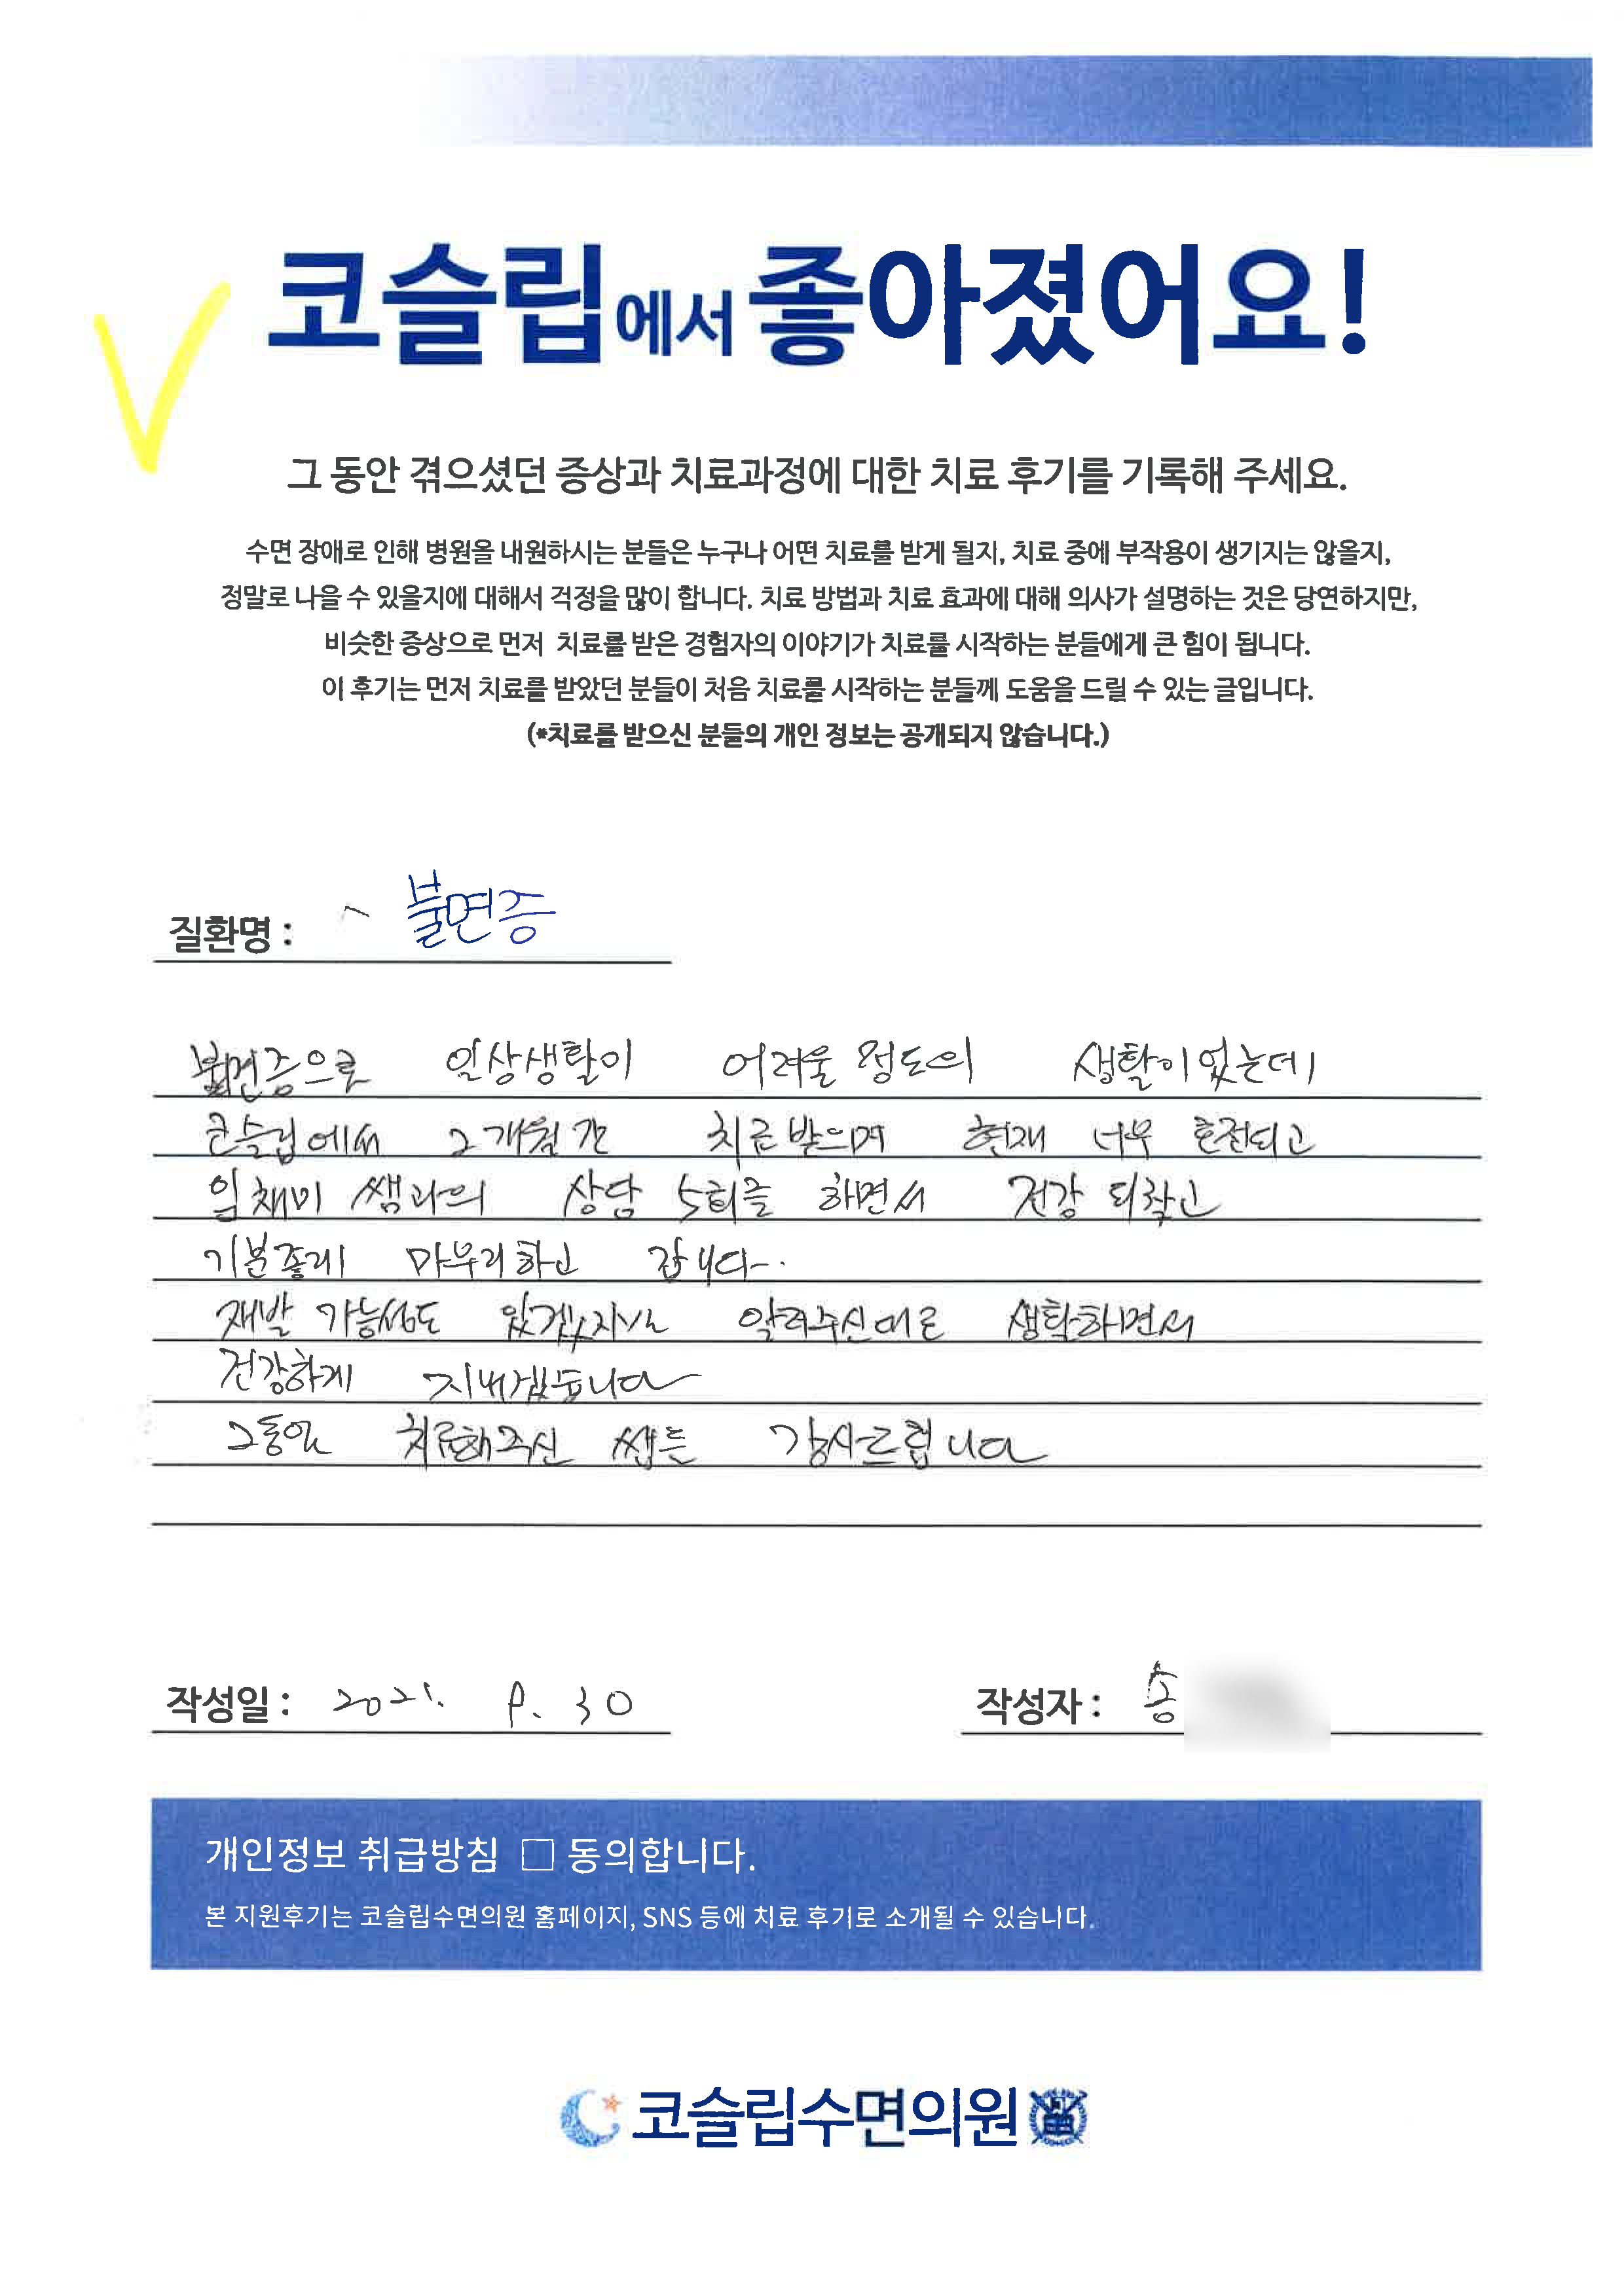 코슬립에서 좋아졌어요!
그 동안 겪으셨던 증상과 치료과정에 대한 치료 후기를 기록해 주세요.
수면 장애로 인해 병원을 내원하시는 분들은 누구나 어떤 치료를 받게 될지, 치료 중에 부작용이 생기지는 않을지,
정말로 나을 수 있을지에 대해서 걱정을 많이 합니다. 치료 방법과 치료 효과에 대해 의사가 설명하는 것은 당연하지만,
비슷한 증상으로 먼저 치료를 받은 경험자의 이야기가 치료를 시작하는 분들에게 큰 힘이 됩니다.
이 후기는 먼저 치료를 받았던 분들이 처음 치료를 시작하는 분들께 도움을 드릴 수 있는 글입니다.
(*치료를 받으신 분들의 개인 정보는 공개되지 않습니다.)
질환명 : 불면증
불면증으로 일상생활이 어려울 정도의 생활이었는데
코슬립에서 2개월간 치료 받으며 현재 너무 호전되고
임채미 쌤과의 상담 5회를 하면서 건강 되찾고
기분좋게 마무리하고 갑니다.
재발 가능성도 있겠지만 알려주신대로 생활하면서
건강하게 지내겠습니다
그동안 치료해주신 쌤들 감사드립니다
작성일 : 2021. 8. 30
작성자 : 송
개인정보 취급방침 □ 동의합니다.
본 지원후기는 코슬립수면의원 홈페이지, SNS 등에 치료 후기로 소개될 수 있습니다.
코슬립수면의원